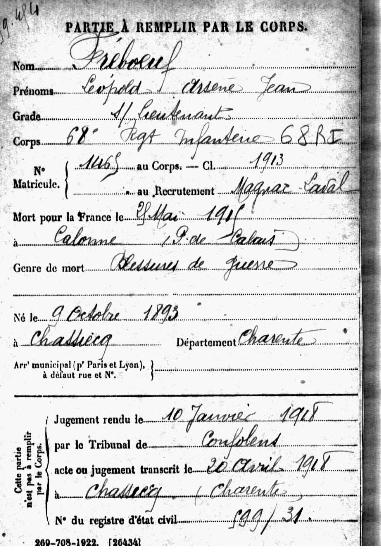 PARTIE À REMPLIR PAR LE CORPS.
Nom Fréboeuf
Prénoms Léopold Arsène Jean
Grade s/ Lieutenant
Corps 68e Rgt Infanterie 68 RI
N° Matricule. au Corps. — Cl. 1913
au Recrutement Magnac Laval
Mort pour la France le 25 Mai 1915
à Calonne (P. de Calais)
Genre de mort Blessures de guerre
Né le 9 Octobre 1893
à Chassiecq Département Charente
Arr' municipal (p' Paris et Lyon),
à défaut rue et N°.
Cette partie n'est pas à remplir par le Corps.
Jugement rendu le 10 Janvier 1918
par le Tribunal de Confolens
acte ou jugement transcrit le 20 Avril 1918
à Chassiecq (Charente)
N° du registre d'état civil 599/31
269-708-1922. [26434]